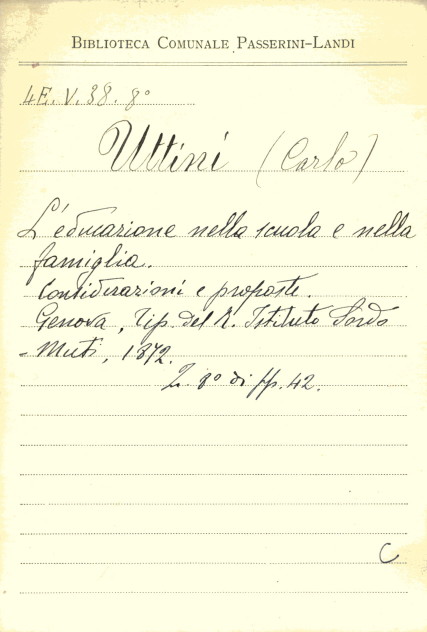 BIBLIOTECA COMUNALE PASSERINI-LANDI
4E. V. 38. 8°
Uttini (Carlo)
L'educazione nella scuola e nella
famiglia.
Considerazioni e proposte.
Genova, Tip. del R. Istituto Sordo
- Muti, 1872.
8° di pp. 42.
C